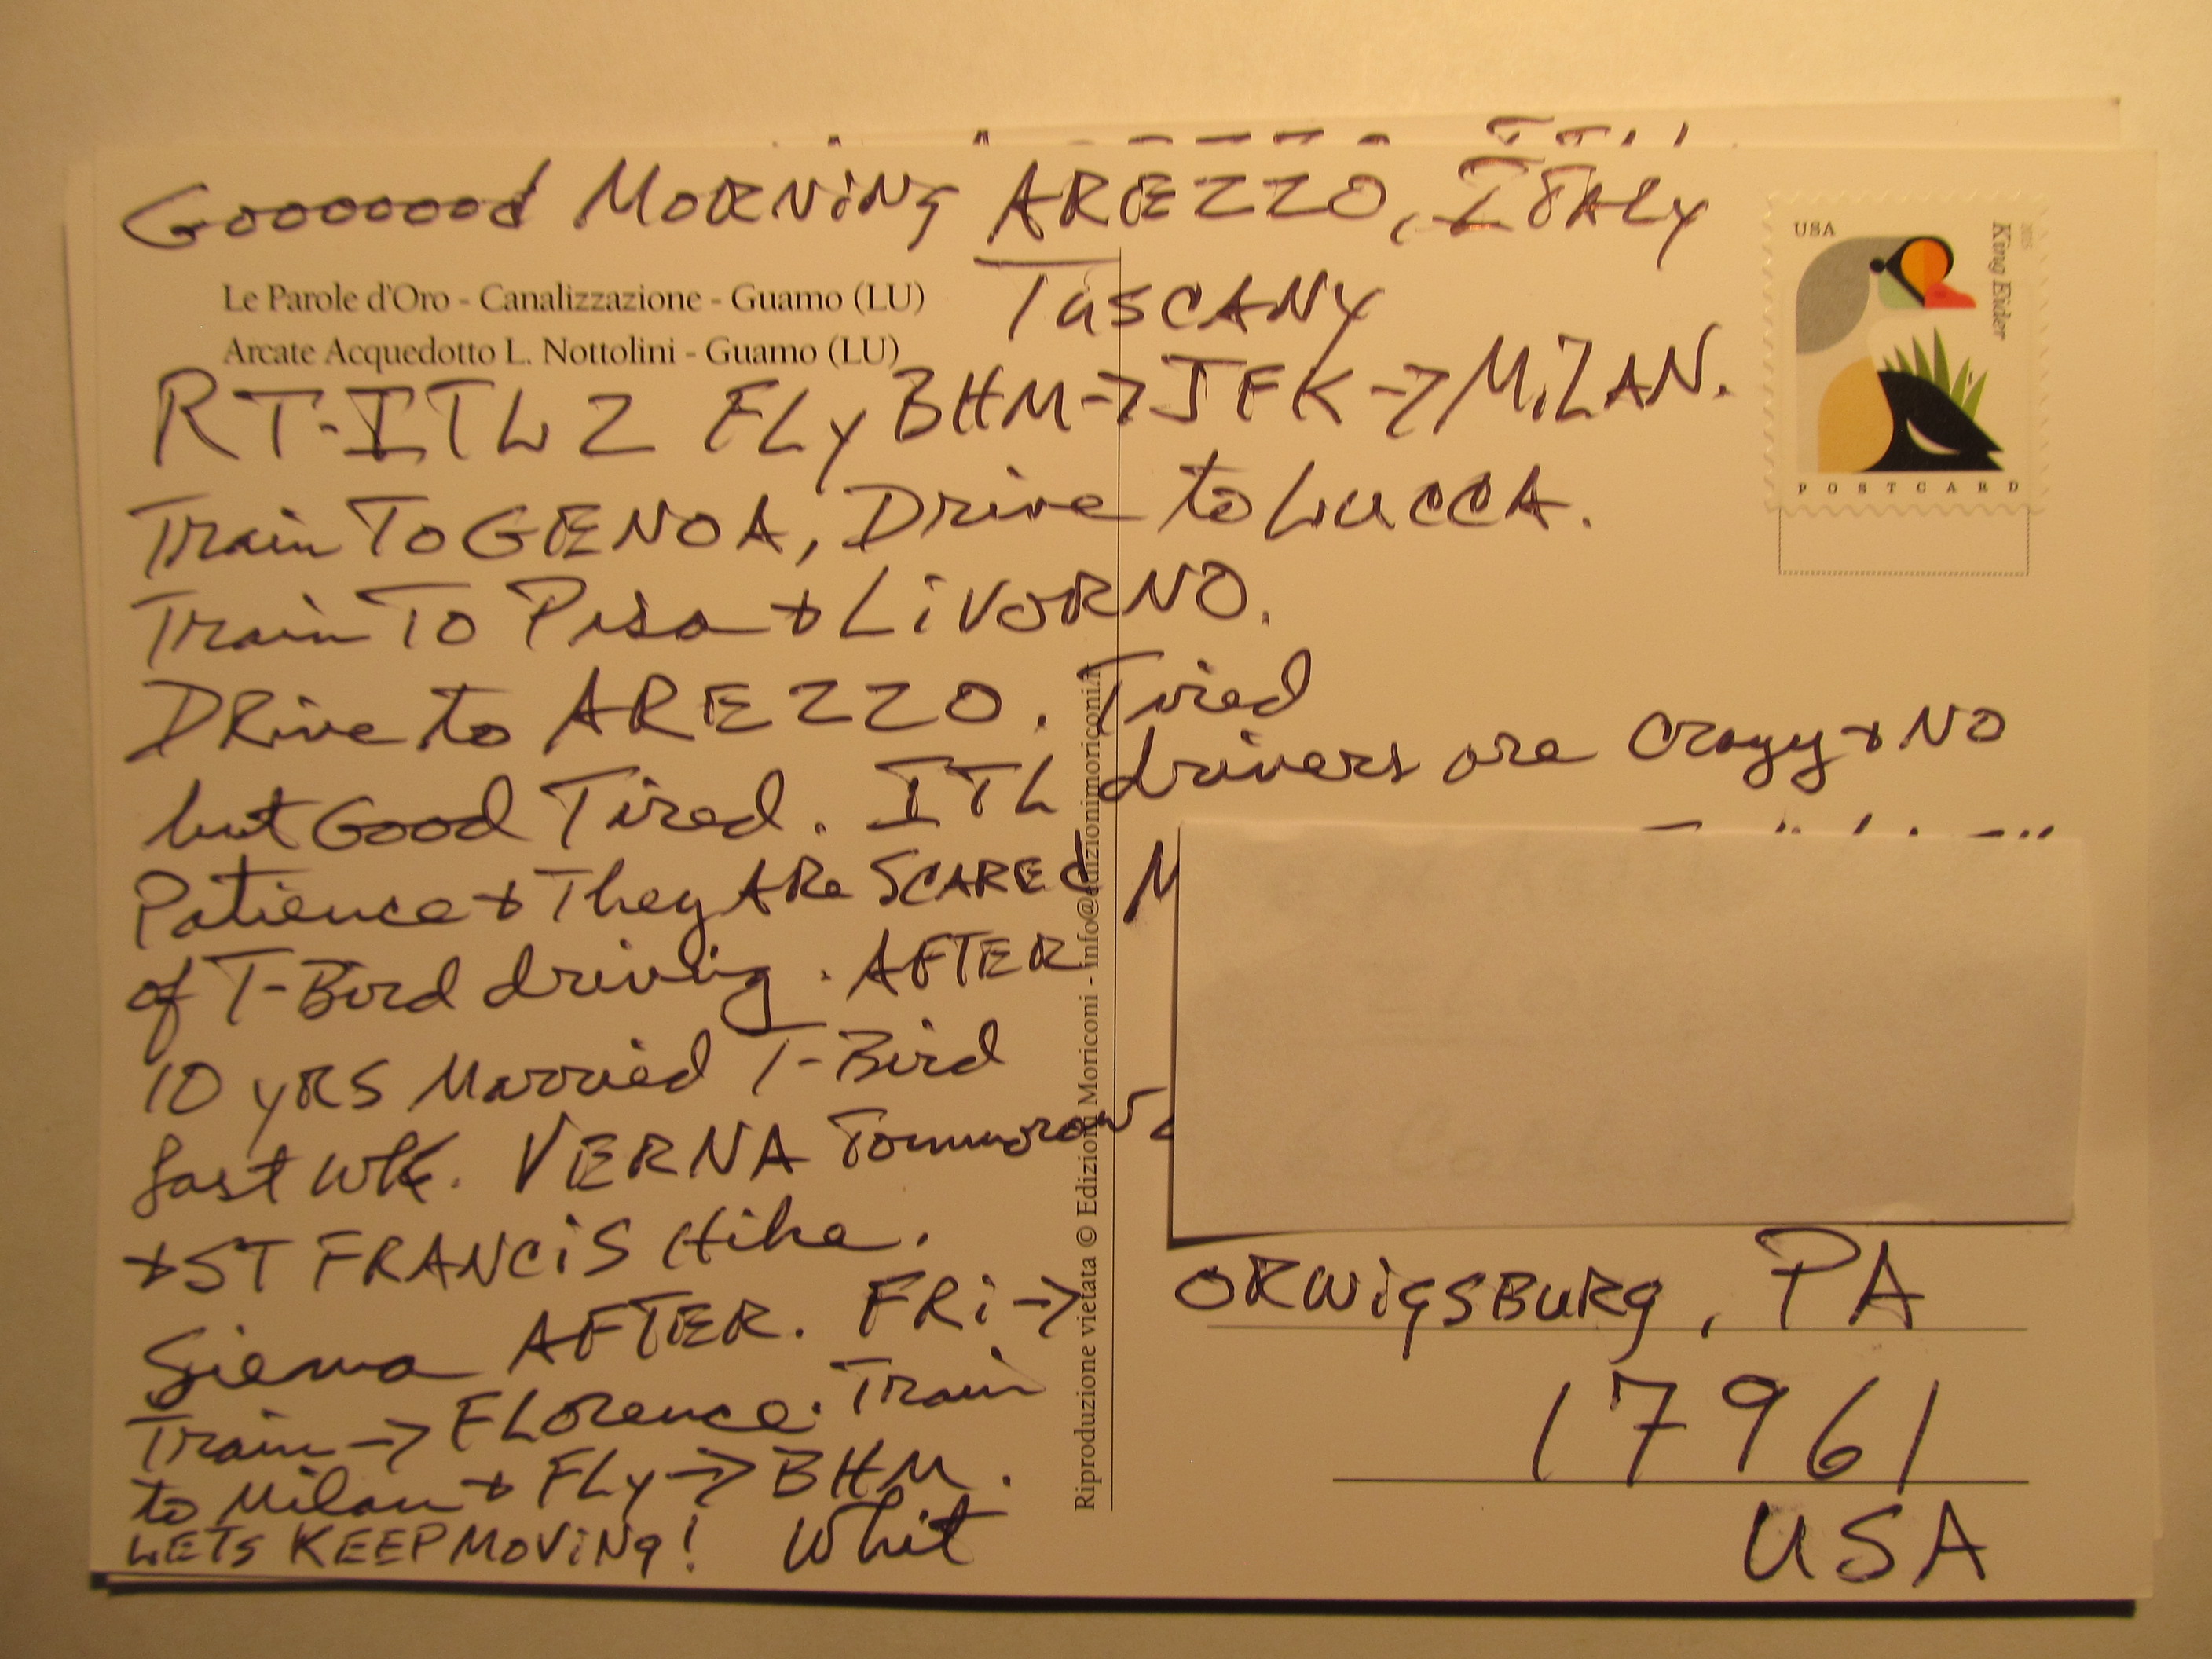 Gooooood MORNiNg AREZZO, ITALy
TuSCANy
Le Parole d'Oro - Canalizzazione - Guamo (LU)
Arcate Acquedotto L. Nottolini - Guamo (LU)
RT-ITL 2 FLy BHM->JFK->MiLAN.
Train To GENOA, Drive to LuCCA.
Train To Pisa + LiVORNO.
DRive to AREZZO. Tired
but Good Tired. ITL drivers are Crazy + NO
Patience + They ARe SCAREd
of T-Bird driving. AFTER
10 yRS Married T-Bird
last wk. VERNA Tommorow
+ ST FRANCiS Hike.
Siena AFTER. FRi ->
Train -> FLorence. Train
to Milan + FLy -> BHM.
LETS KEEP MOViNg! Whit
Riproduzione vietata © Edizioni Moriconi - info@edizionimoriconi.it
USA
2015
King Eider
POSTCARD
M
ORWigSBuRg, PA
17961
USA